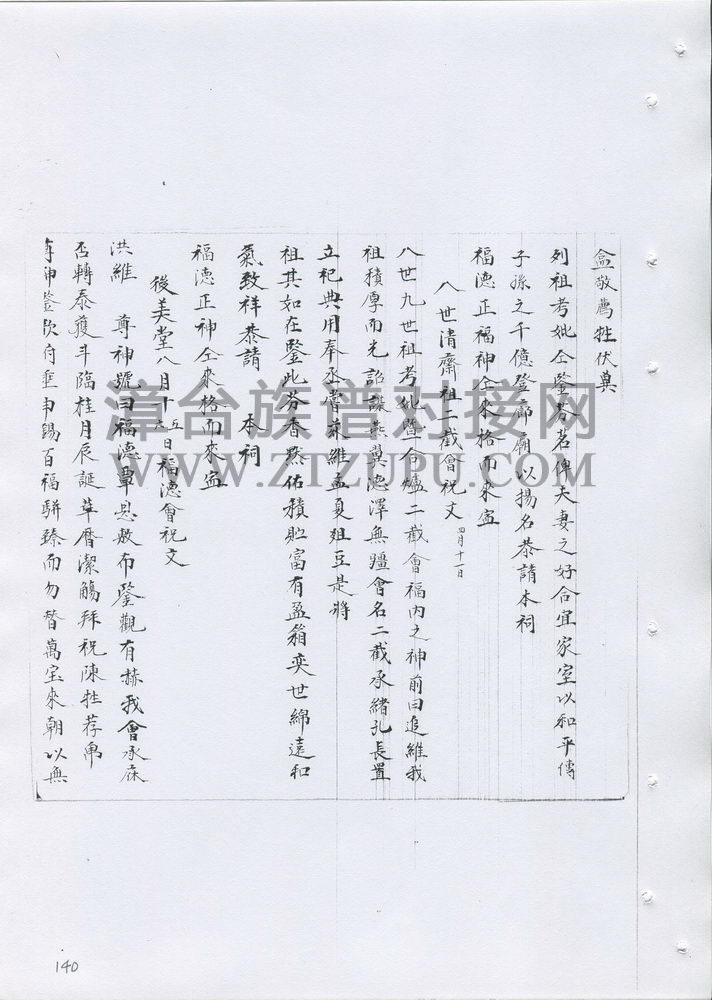 盒敬薦牲伏奠
列祖考妣仝鑒芬茗俾夫妻之好合宜家室以和平傳
子孫之千億登廊廟以揚名恭請本祠
福德正福神仝來格而來寍
八世清齋祖二截會祝文 四月十一日
八世九世祖考妣暨合爐二截會福內之神前曰追維我
祖積厚而光詒謀燕翼德澤無疆會名二截承緒孔長置
立祀典用奉烝嘗兹維孟夏俎豆是將
祖其如在鑒此芬香黙佑積貯富有盈箱奕世綿遠和
氣致祥恭請 本祠
福德正神仝來格而來寍
後美堂八月十五六日福德會祝文
洪維 尊神號曰福德覃恩敷布鑒觀有赫我會承庥
否轉泰獲斗臨桂月辰誕華曆潔觴拜祝陳牲荐帛
神鑒歆府垂申錫百福駢臻而勿替萬宝來朝以無
漳台族谱对接网
WWW.ZTZUPU.COM
140